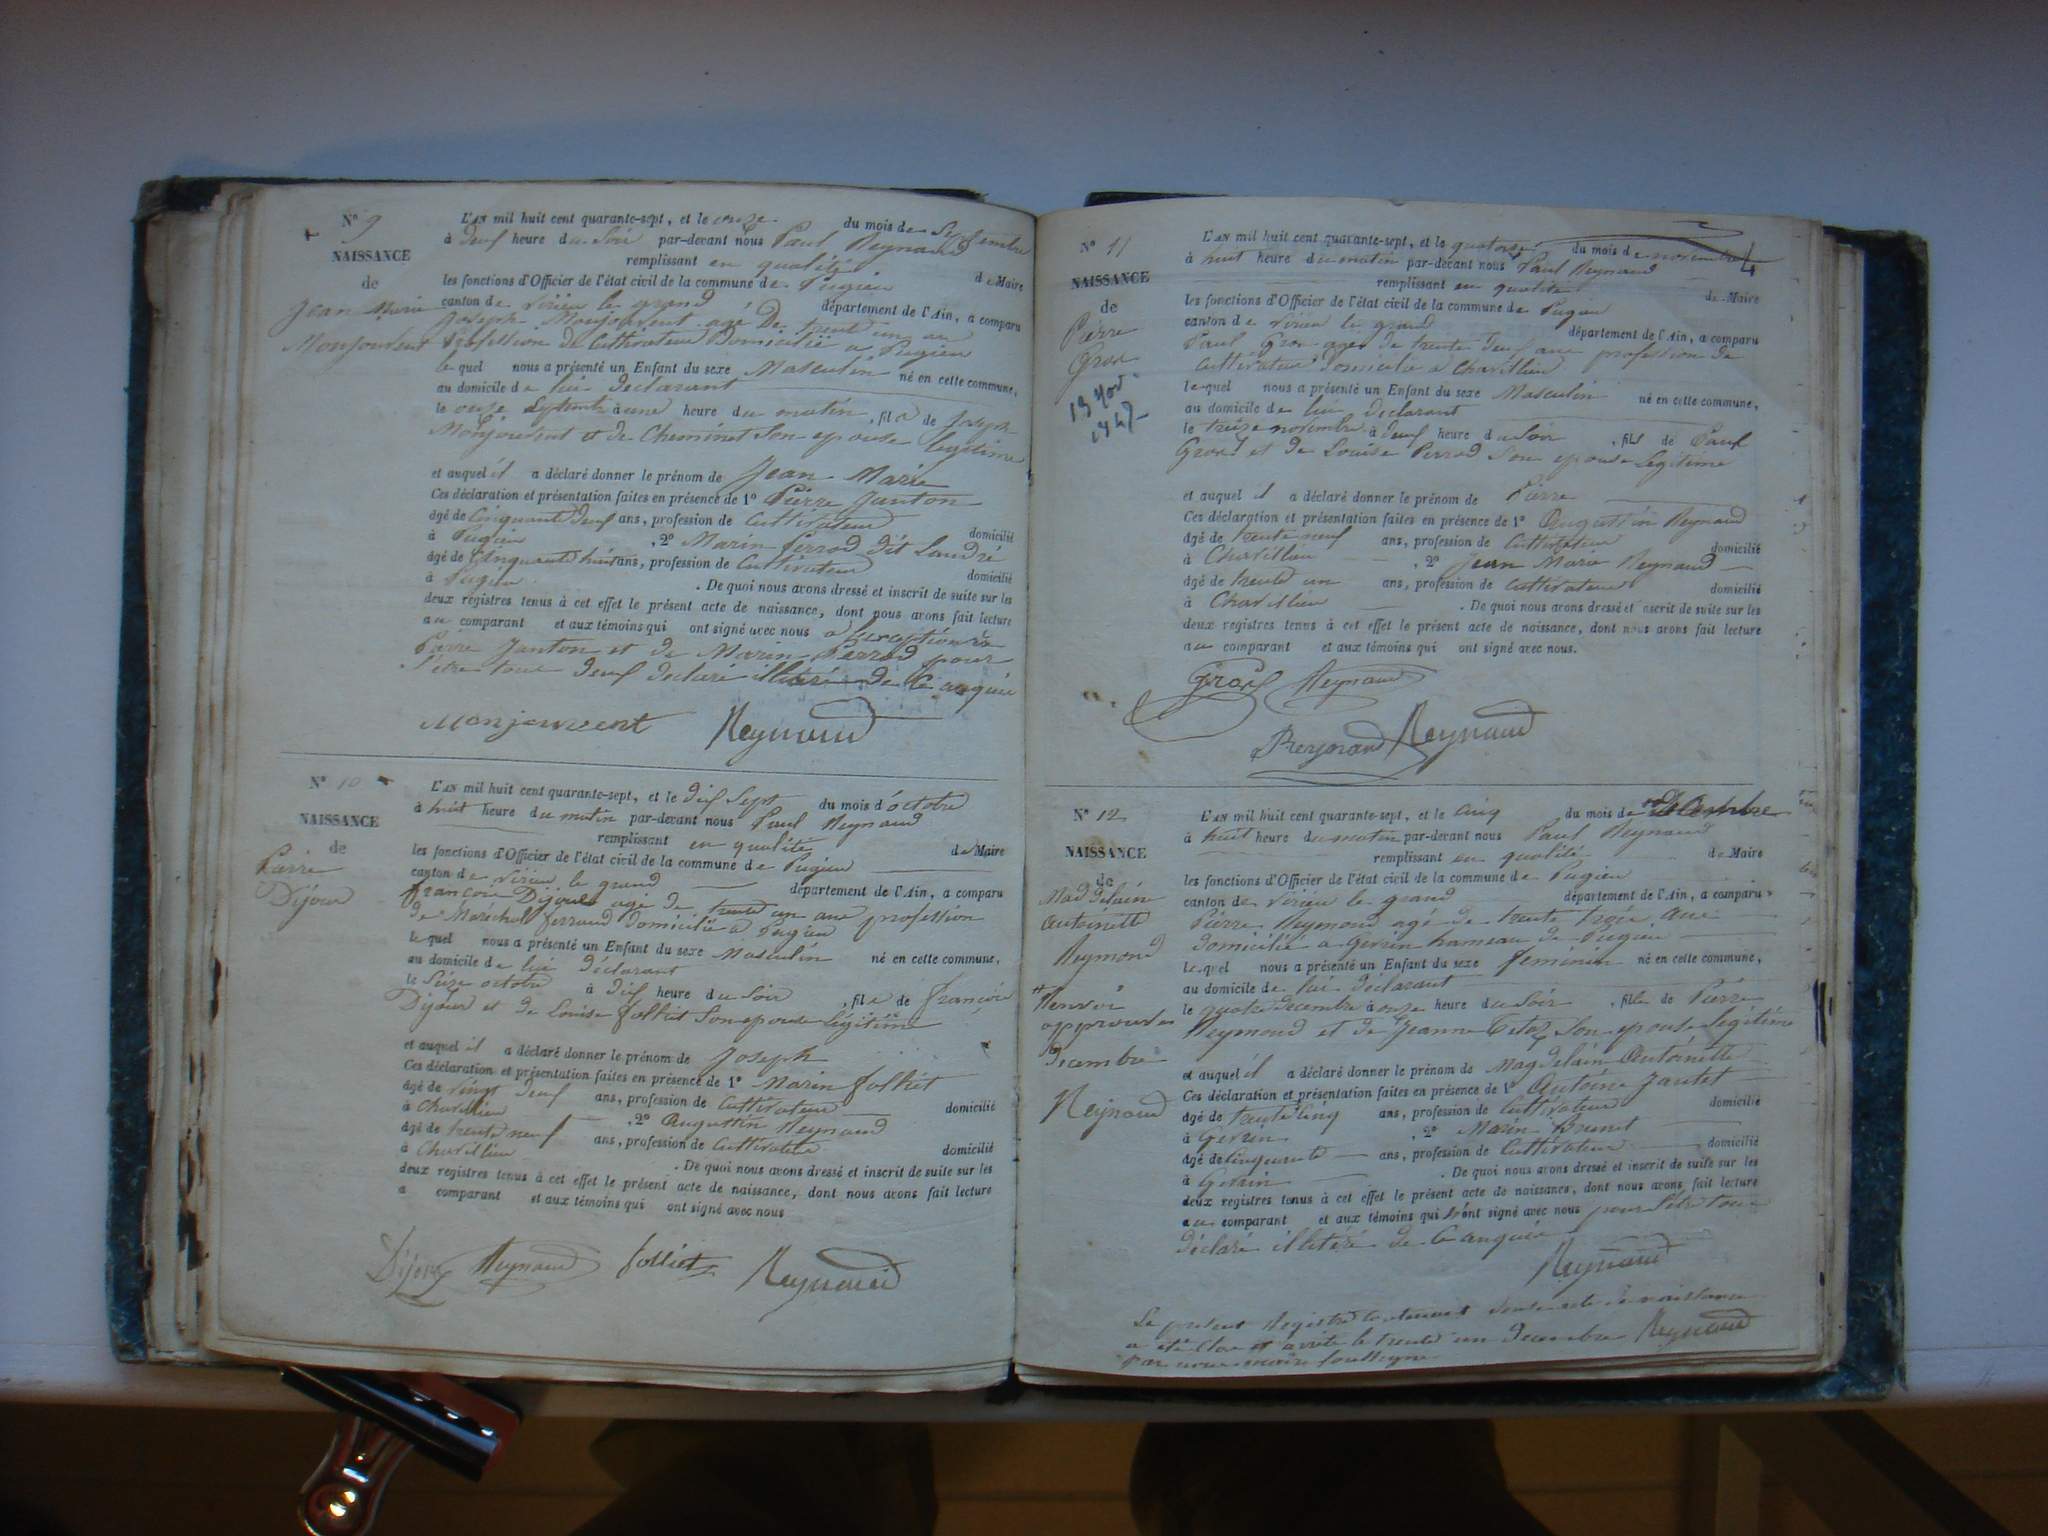 N° 9
NAISSANCE
de
Jean Marie
Monjouvent
L'AN mil huit cent quarante-sept, et le onze du mois de Septembre
à deux heure du Soir par-devant nous Paul Reynaud
remplissant en qualité de Maire
les fonctions d'Officier de l'état civil de la commune de Pugieu
canton de Virieu le grand département de l'Ain, a comparu
Joseph Monjouvent agé De trent un an
profession de Cultivateur Domicilié a Pugieu
le quel nous a présenté un Enfant du sexe Masculin né en cette commune,
au domicile de lui declarant
le onze Septembre à une heure du matin, fils de Joseph
Monjouvent et de Cheminet Son epouse legitime
et auquel il a déclaré donner le prénom de Jean Marie
Ces déclaration et présentation faites en présence de 1° Pierre Janton
âgé de Cinquante deux ans, profession de Cultivateur domicilié
à Pugieu, 2° Marin Perrod dit Landré
âgé de Cinquante huit ans, profession de Cultivateur domicilié
à Pugieu. De quoi nous avons dressé et inscrit de suite sur les
deux registres tenus à cet effet le présent acte de naissance, dont nous avons fait lecture
au comparant et aux témoins qui ont signé avec nous a l'exception de
Pierre Janton et de Marin Perrod pour
s'être tous deux declaré illiteré de ce requis
Monjouvent Reynaud
N° 10
NAISSANCE
de
Pierre
Dijoux
L'AN mil huit cent quarante-sept, et le dix Sept du mois d'octobre
à huit heure du matin par-devant nous Paul Reynaud
remplissant en qualité de Maire
les fonctions d'Officier de l'état civil de la commune de Pugieu
canton de Virieu le grand département de l'Ain, a comparu
François Dijoux agé de trente un ans profession
de Maréchal ferrand domicilié a Pugieu
le quel nous a présenté un Enfant du sexe Masculin né en cette commune,
au domicile de lui déclarant
le Seize octobre à dix heure du Soir, fils de françois
Dijoux et de Louise folliet Son epouse légitime
et auquel il a déclaré donner le prénom de Joseph
Ces déclaration et présentation faites en présence de 1° Marin folliet
âgé de vingt deux ans, profession de Cultivateur domicilié
à Chavillieu, 2° Augustin Reynaud
âgé de trente neuf ans, profession de Cultivateur domicilié
à Chavillieu. De quoi nous avons dressé et inscrit de suite sur les
deux registres tenus à cet effet le présent acte de naissance, dont nous avons fait lecture
a comparant et aux témoins qui ont signé avec nous
Dijoux Reynaud folliet Reynaud
N° 11
NAISSANCE
de
Pierre
Gros
13 Nov.
1847
L'AN mil huit cent quarante-sept, et le quatorze du mois de novembre
4
à huit heure du matin par-devant nous Paul Reynaud
remplissant en qualité de Maire
les fonctions d'Officier de l'état civil de la commune de Pugieu
canton de Virieu le grand département de l'Ain, a comparu
Paul Gros agés de trente deux ans profession de
Cultivateur domicilié à Chavillieu
le quel nous a présenté un Enfant du sexe Masculin né en cette commune,
au domicile de lui déclarant
le treize novembre à deux heure du Soir, fils de Paul
Gros et de Louise Perrod Son epouse Légitime
et auquel il a déclaré donner le prénom de Pierre
Ces déclaration et présentation faites en présence de 1° Augustin Reynaud
âgé de trente neuf ans, profession de Cultivateur domicilié
à Chavillieu, 2° Jean Marie Reynaud
âgé de trente un ans, profession de Cultivateur domicilié
à Chavillieu. De quoi nous avons dressé et inscrit de suite sur les
deux registres tenus à cet effet le présent acte de naissance, dont nous avons fait lecture
au comparant et aux témoins qui ont signé avec nous.
Gros Reynaud
Reynaud Reynaud
N° 12
NAISSANCE
de
Magdelaine
Antoinette
Reymond
Renvoi
approuvé
Décembre
Reynaud
L'AN mil huit cent quarante-sept, et le cinq du mois de Décembre
à huit heure du matin par-devant nous Paul Reynaud
remplissant en qualité de Maire
les fonctions d'Officier de l'état civil de la commune de Pugieu
canton de Virieu le grand département de l'Ain, a comparu
Pierre Reymond agé de trente trois ans
domicilié a Gevrin hameau de Pugieu
le quel nous a présenté un Enfant du sexe feminin né en cette commune,
au domicile de lui déclarant
le quatre decembre à onze heure du Soir, fille de Pierre
Reymond et de Jeanne Son epouse Légitime
et auquel il a déclaré donner le prénom de Magdelain Antoinette
Ces déclaration et présentation faites en présence de 1° Antoine Jantet
âgé de trente cinq ans, profession de Cultivateur domicilié
à Gevrin, 2° Marin Brunet
âgé de Cinquante ans, profession de Cultivateur domicilié
à Gevrin. De quoi nous avons dressé et inscrit de suite sur les
deux registres tenus à cet effet le présent acte de naissance, dont nous avons fait lecture
au comparant et aux témoins qui n'ont signé avec nous pour s'être tous
déclaré illitéré de ce requis
Reynaud
Le présent Registre contenant douze acte de naissance
a été Clos et arreté le trente un Decembre
par nous maire soussigné Reynaud